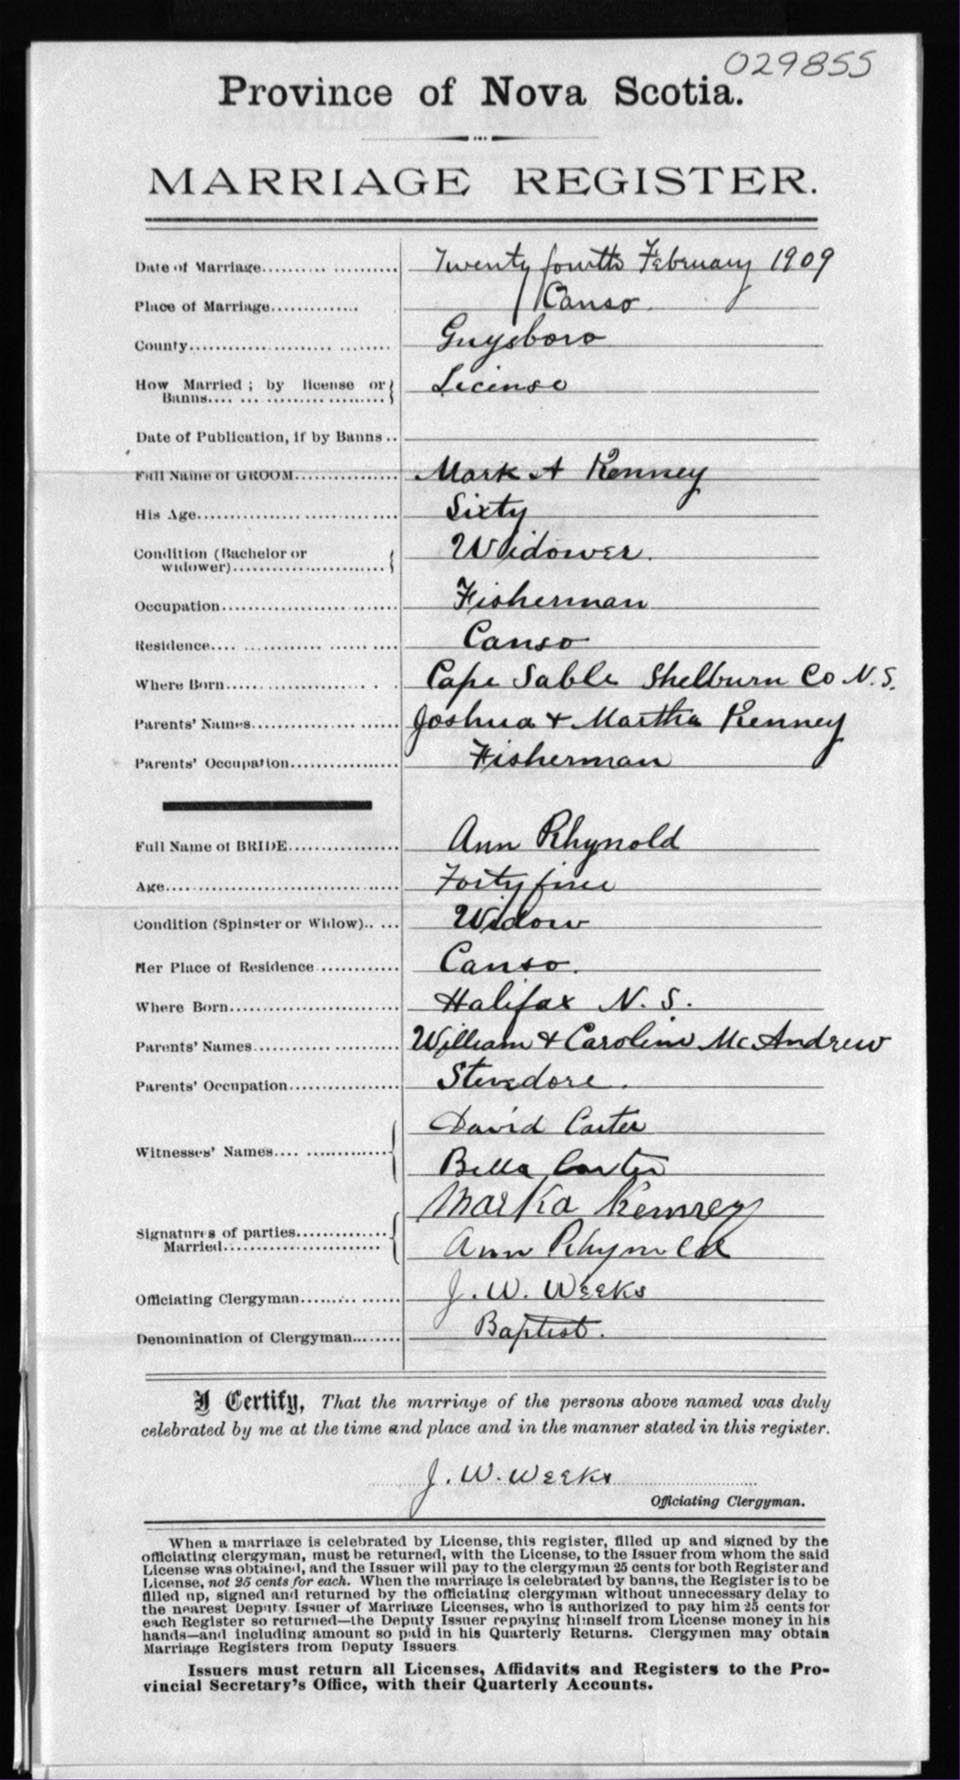 029855
Province of Nova Scotia.
MARRIAGE REGISTER.
Date of Marriage.......... .................... Twenty fourth February 1909
Place of Marriage............. Canso
County......................... ......... Guysboro
How Married ; by license or Banns.... ... ..................... License
Date of Publication, if by Banns ..
Full Name of GROOM................ Mark A Kenney
His Age................................ Sixty
Condition (Bachelor or widower)........................ Widower.
Occupation............................ Fisherman
Residence.... ............. ...... .... Canso
Where Born....................... . . Cape Sable Shelburn Co N.S.
Parents' Names....................... Joshua & Martha Kenney
Parents' Occupation................. Fisherman
Full Name of BRIDE................. Ann Rhynold
Age..................................... Forty five
Condition (Spinster or Widow).. ... Widow
Her Place of Residence............. Canso.
Where Born........................... Halifax N. S.
Parents' Names....................... William & Caroline McAndrew
Parents' Occupation................. Stevedore.
Witnesses' Names.... ............... David Carter
Bella Carter
Signatures of parties Married........................... Mark a Kenney
Ann Rhynold
Officiating Clergyman.......... ....... J. W. Weeks
Denomination of Clergyman......... Baptist.
I Certify, That the marriage of the persons above named was duly
celebrated by me at the time and place and in the manner stated in this register.
J. W. Weeks
Officiating Clergyman.
When a marriage is celebrated by License, this register, filled up and signed by the
officiating clergyman, must be returned, with the License, to the Issuer from whom the said
License was obtained, and the Issuer will pay to the clergyman 25 cents for both Register and
License, not 25 cents for each. When the marriage is celebrated by banns, the Register is to be
filled up, signed and returned by the officiating clergyman without unnecessary delay to
the nearest Deputy Issuer of Marriage Licenses, who is authorized to pay him 25 cents for
each Register so returned—the Deputy Issuer repaying himself from License money in his
hands—and including amount so paid in his Quarterly Returns. Clergymen may obtain
Marriage Registers from Deputy Issuers
Issuers must return all Licenses, Affidavits and Registers to the Pro-
vincial Secretary's Office, with their Quarterly Accounts.